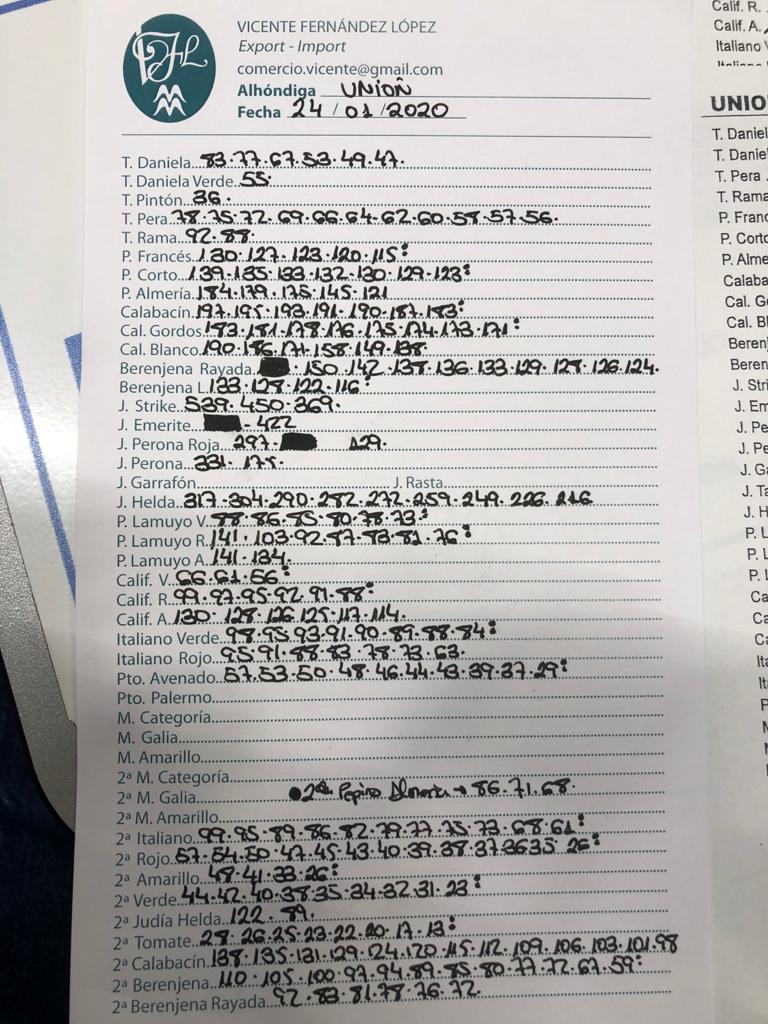 VICENTE FERNÁNDEZ LÓPEZ
Export - Import
comercio.vicente@gmail.com
Alhóndiga UNION
Fecha 24/01/2020
T. Daniela 83.77.67.53.49.47.
T. Daniela Verde 55.
T. Pintón 36.
T. Pera 78.75.72.69.66.64.62.60.58.57.56.
T. Rama 92.88.
P. Francés 130.127.123.120.115:
P. Corto 139.135.133.132.130.129.123:
P. Almería 184.179.175.145.121
Calabacín 197.195.193.191.190.187.183:
Cal. Gordos 183.181.178.176.175.174.173.171:
Cal. Blanco 190.186.171.158.149.138.
Berenjena Rayada 150.142.137.136.133.129.127.126.124.
Berenjena L. 133.127.122.116:
J. Strike 539.450.369.
J. Emerite - 422
J. Perona Roja 297. 129.
J. Perona 331. 175.
J. Garrafón J. Rasta
J. Helda 317.304.290.282.272.259.249.226.216
P. Lamuyo V. 88.86.85.80.78.73:
P. Lamuyo R. 141.103.92.87.83.81.76:
P. Lamuyo A. 141.134.
Calif. V. 66.61.56:
Calif. R. 99.97.95.92.91.88:
Calif. A. 130.128.126.125.117.114.
Italiano Verde 98.95.93.91.90.89.88.84:
Italiano Rojo 95.91.88.83.78.73.63.
Pto. Avenado 57.53.50.48.46.44.43.39.37.29:
Pto. Palermo
M. Categoría
M. Galia
M. Amarillo
2ª M. Categoría
2ª M. Galia 2ª Pepino Almería → 86.71.68.
2ª M. Amarillo
2ª Italiano 99.95.89.86.82.79.77.75.73.68.61:
2ª Rojo 57.54.50.47.45.43.40.39.38.37.36.35.26:
2ª Amarillo 48.41.33.26:
2ª Verde 44.42.40.38.35.34.32.31.23:
2ª Judía Helda 122.89.
2ª Tomate 28.26.25.23.22.20.17.13:
2ª Calabacín 138.135.131.129.124.120.115.112.109.106.103.101.98
2ª Berenjena 110.105.100.97.94.89.85.80.77.72.67.59:
2ª Berenjena Rayada 92.83.81.78.76.72
Calif. R.
Calif. A.
Italiano
UNIO
T. Daniel
T. Danie
T. Pera
T. Rama
P. Franc
P. Corto
P. Alme
Calaba
Cal. Go
Cal. Bl
Berenj
Beren
J. Stri
J. Em
J. Pe
J. Pe
J. Ga
J. Ta
J. H
P. L
P. L
P. L
Ca
Ca
Ca
Ita
It
P